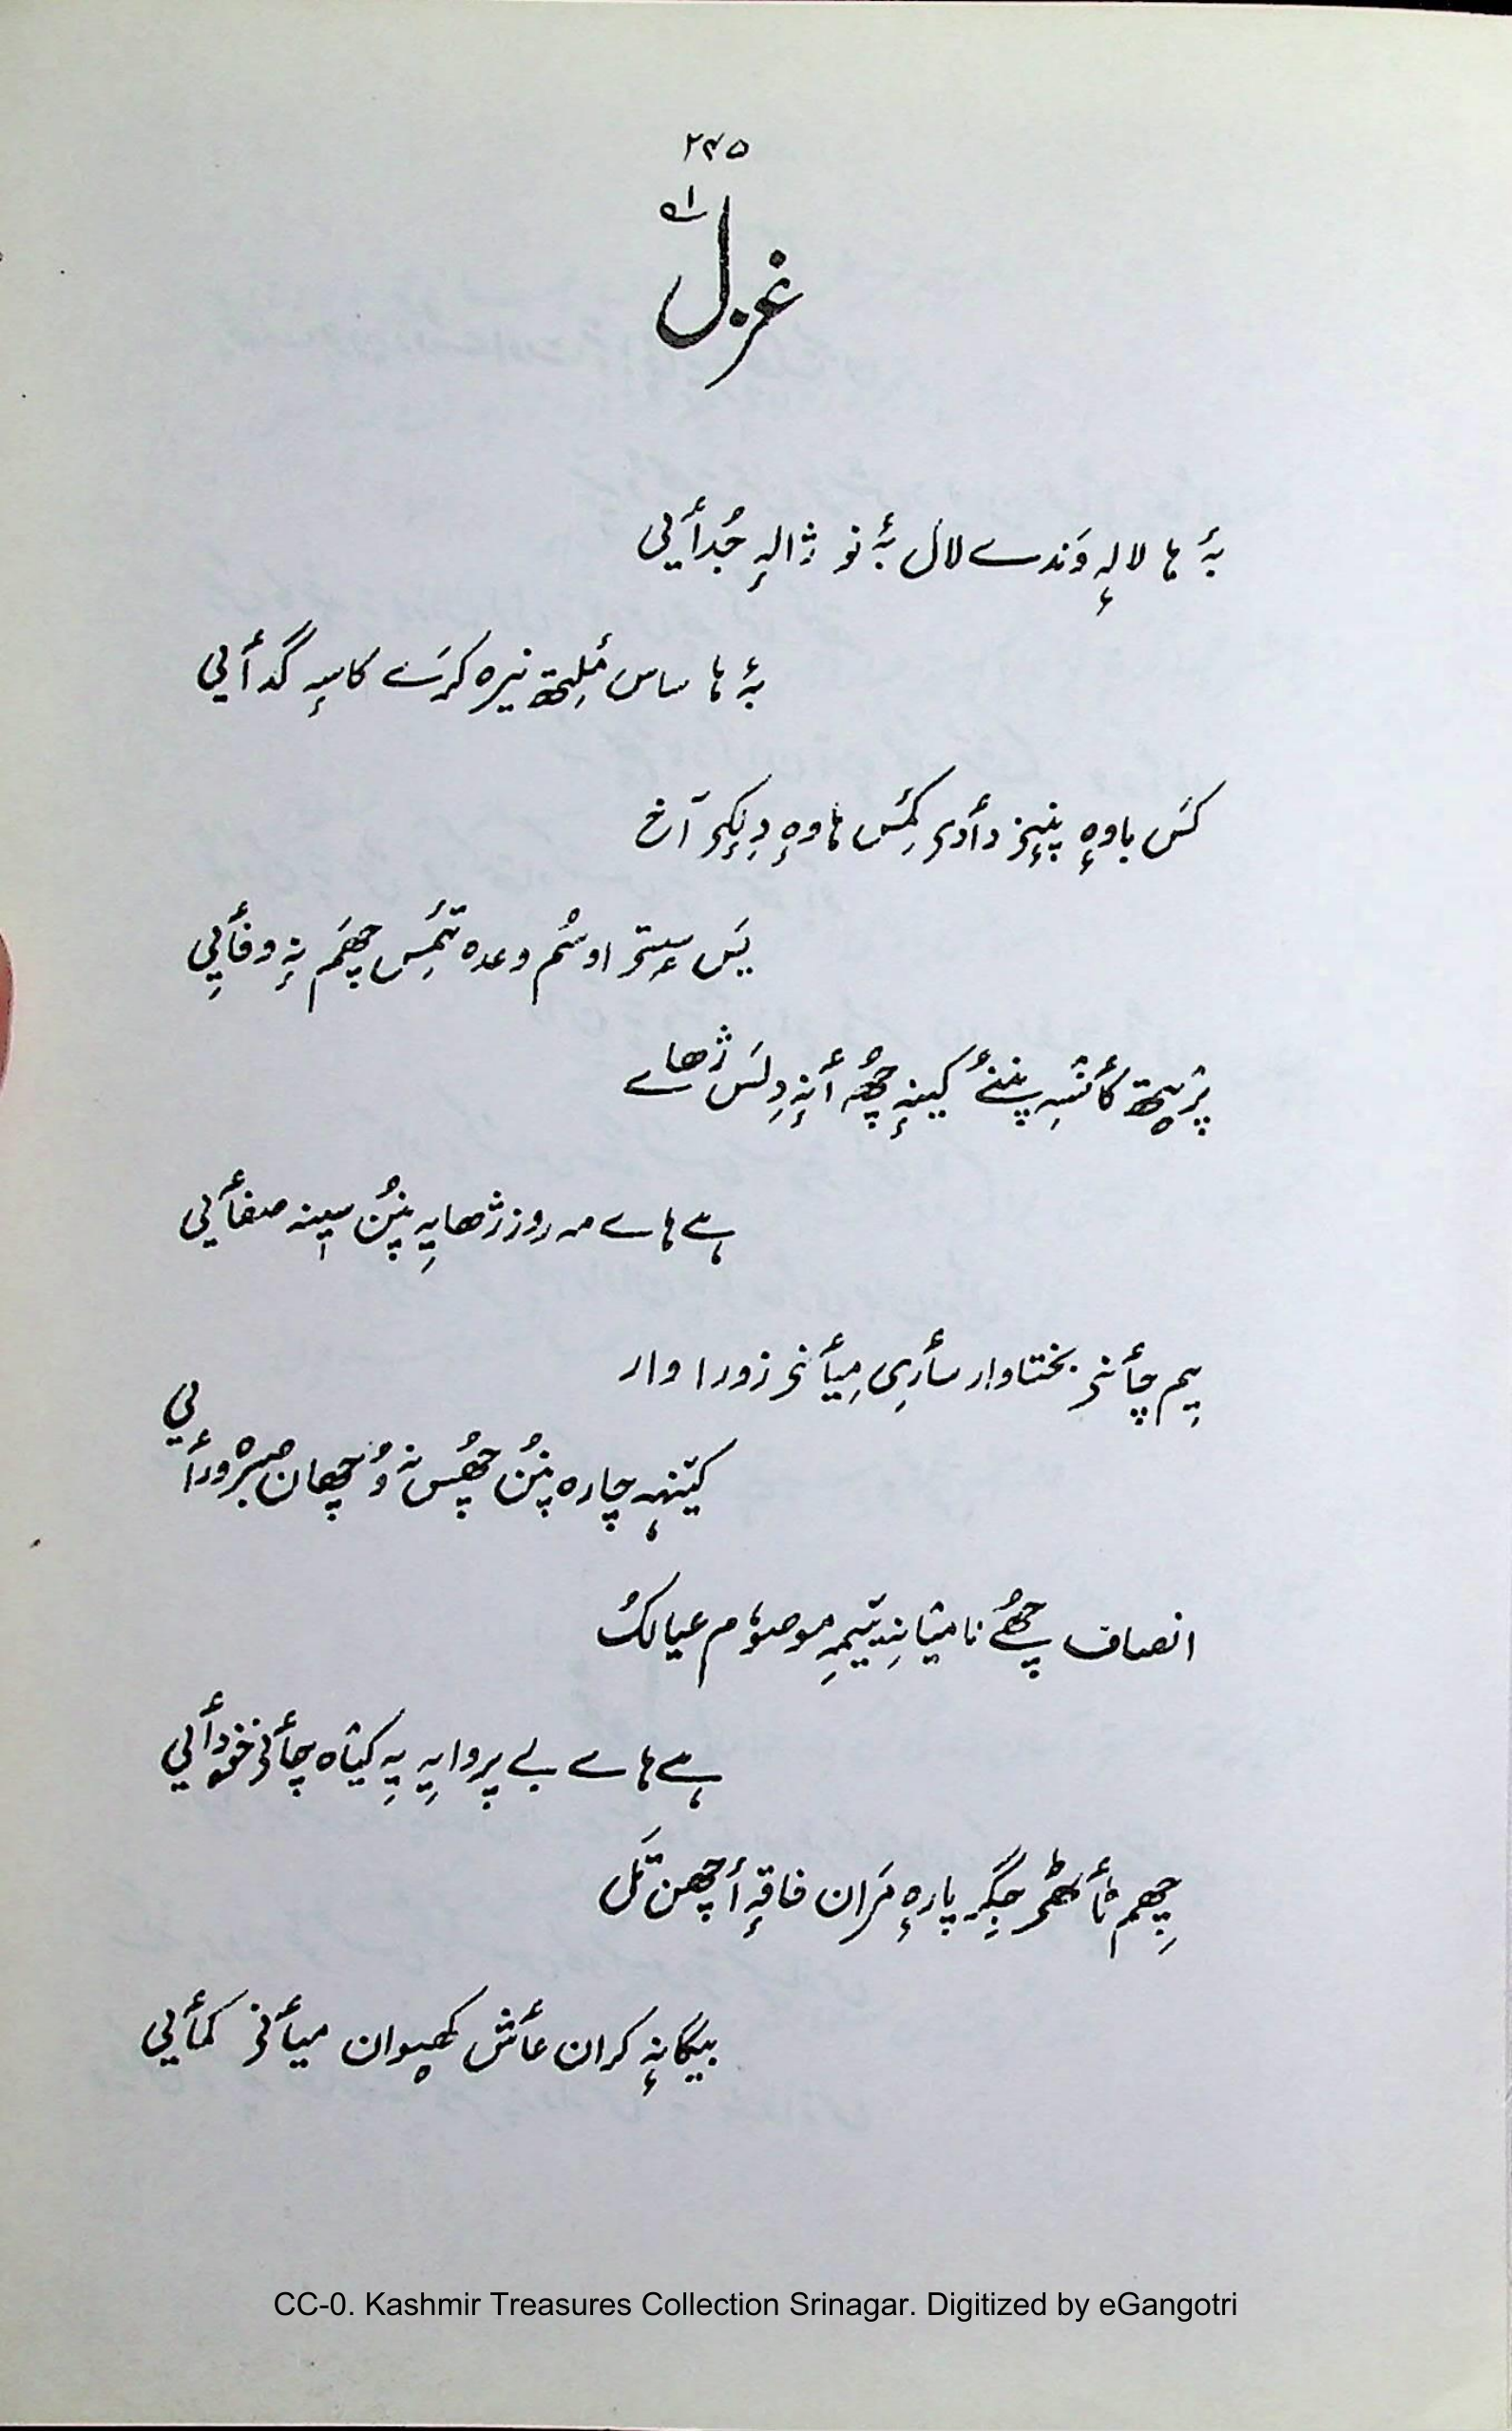 ۲۴۵
غزل
بہٕ ہا لالہٕ وَندے لال بہٕ نو ژالہٕ جُدأیی
بہٕ ہا ساس مٔلِتھ نیرہ کرَے کاسہٕ گدأیی
کَس باوہٕ پنیٖنۍ دأدۍ کَمِس ہاوہٕ دِلِکۍ آخ
یَس سٟتۍ اوسُم وعدہ تَمِس چھَم نہٕ وفأیی
پرٛیتھ کأنٛسہِ پننُے کینہٕ چھُہ أنہٕ دِلَس ژھاے
ہے ہاے مہ روز ژھایہِ پنُن سیٖنہ صفأیی
یِم چأنۍ بختاوار سأری مِیأنۍ زوراوار
کیٚنہہ چارہ پنُن چھُس نہٕ وُچھان صبرٕ ورأیی
انصاف چھُے نا میٛانِہ یتیمہِ موصوٗم عیالُک
ہے ہاے بے پروایہِ یہِ کیٛاہ چأنۍ خۄدأیی
چھِم ٹأٹھۍ جِگر پارہٕ مَران فاقہٕ أچھن تَل
بیگانہٕ کران عأش کھیوان میأنۍ کمأیی
CC-0. Kashmir Treasures Collection Srinagar. Digitized by eGangotri